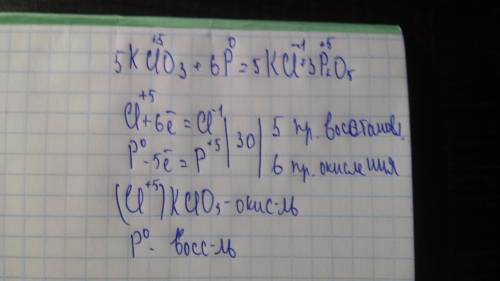 5KCl⁺⁵O₃ + 6P⁰ = 5KCl⁻¹ + 3P₂⁺⁵O₅
Cl⁺⁵ + 6ē = Cl⁻¹ | 30 | 5 пр. восстановл
P⁰ - 5ē = P⁺⁵ | 6 пр. окисления
(Cl⁺⁵) KClO₃ - окис-ль
P⁰ - восс-ль